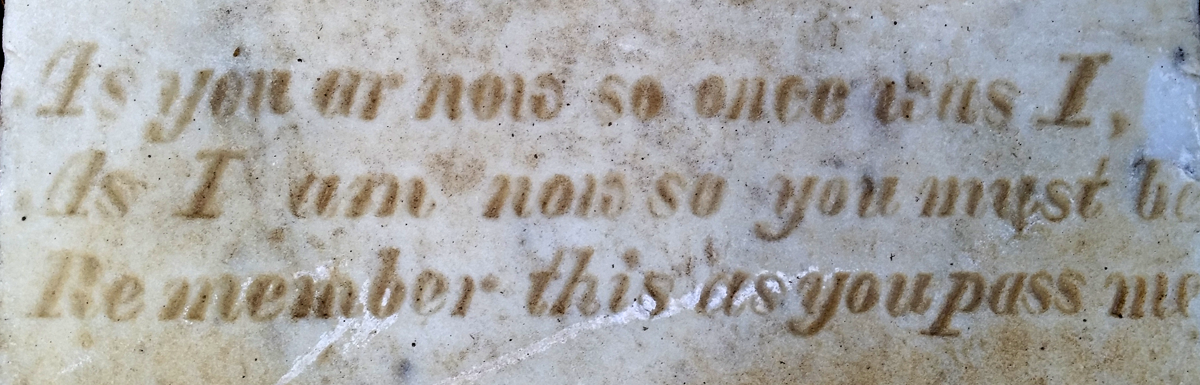 As you ar now so once was I,
As I am now so you must be
Remember this as you pass me